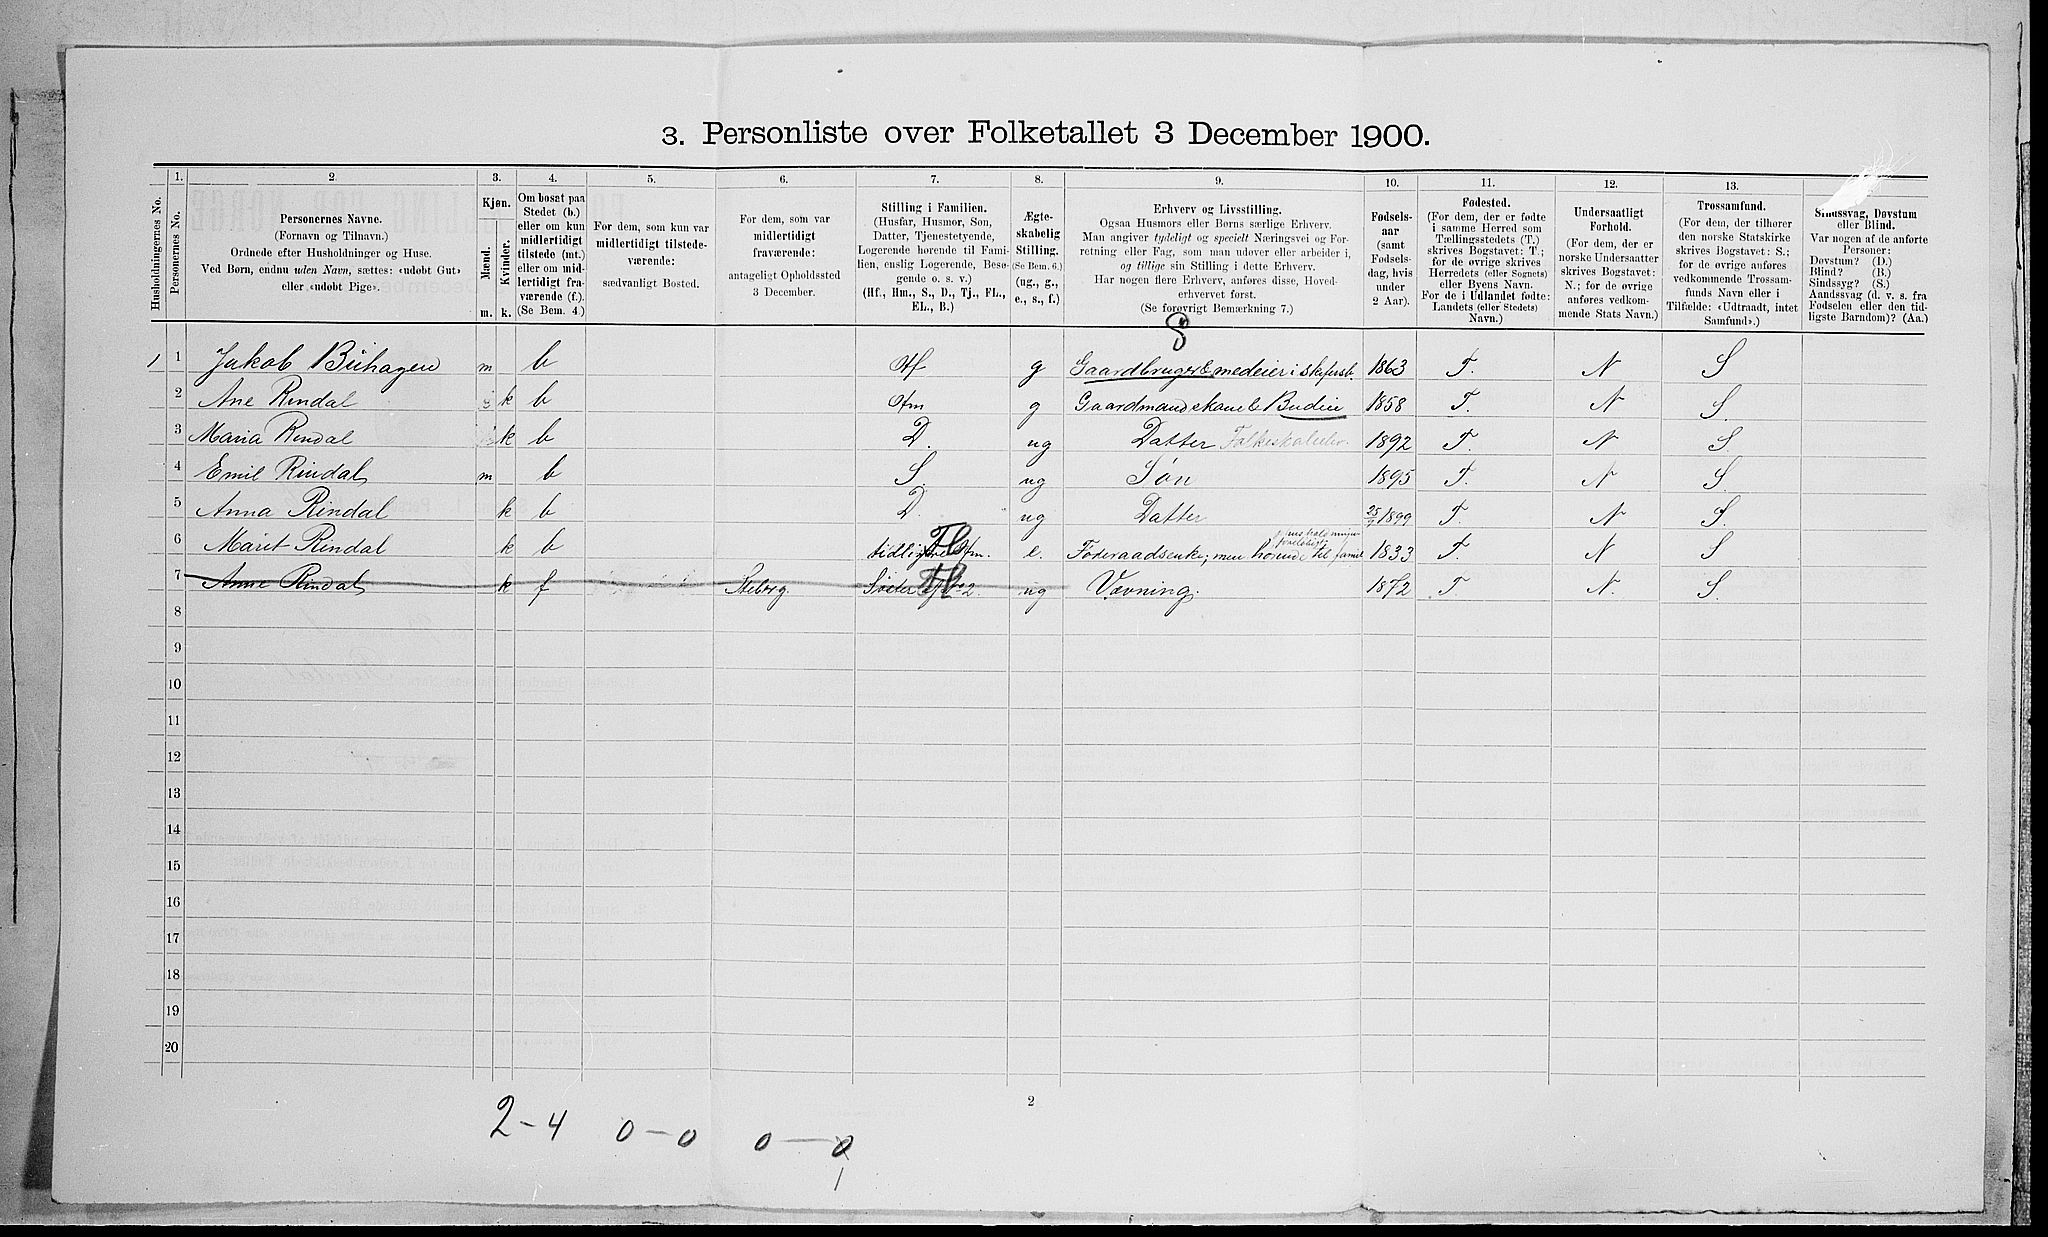 3. Personliste over Folketallet 3 December 1900.
Husholdningernes No.
1.
Personernes No.
2.
Personernes Navne.
(Fornavn og Tilnavn.)
Ordnede efter Husholdninger og Huse.
Ved Børn, endnu uden Navn, sættes: «udøbt Gut»
eller «udøbt Pige».
3.
Kjøn.
Mænd.
Kvinder.
m. k.
4.
Om bosat paa
Stedet (b.)
eller om kun
midlertidigt
tilstede (mt.)
eller om mid-
lertidigt fra-
værende (f.).
(Se Bem. 4.)
5.
For dem, som kun var
midlertidigt tilstede-
værende:
sædvanligt Bosted.
6.
For dem, som var
midlertidigt
fraværende:
antageligt Opholdssted
3 December.
7.
Stilling i Familien.
(Husfar, Husmor, Søn,
Datter, Tjenestetyende,
Logerende hørende til Fami-
lien, enslig Logerende, Besø-
gende o. s. v.)
(Hf., Hm., S., D., Tj., FL.,
EL., B.)
8.
Ægte-
skabelig
Stilling.
(Se Bem. 6.)
(ug., g.,
e., s., f.)
9.
Erhverv og Livsstilling.
Ogsaa Husmors eller Børns særlige Erhverv.
Man angiver tydeligt og specielt Næringsvei og For-
retning eller Fag, som man udøver eller arbeider i,
og tillige sin Stilling i dette Erhverv.
Har nogen flere Erhverv, anføres disse, Hoved-
erhvervet først.
(Se forøvrigt Bemærkning 7.)
10.
Fødsels-
aar
(samt
Fødsels-
dag, hvis
under
2 Aar).
11.
Fødested.
(For dem, der er fødte
i samme Herred som
Tællingsstedets (T.)
skrives Bogstavet: T.;
for de øvrige skrives
Herredets (eller Sognets)
eller Byens Navn.
For de i Udlandet fødte:
Landets (eller Stedets)
Navn.)
12.
Undersaatligt
Forhold.
(For dem, der er
norske Undersaatter
skrives Bogstavet:
N.; for de øvrige
anføres vedkom-
mende Stats Navn.)
13.
Trossamfund.
(For dem, der tilhører
den norske Statskirke
skrives Bogstavet: S.;
for de øvrige anføres
vedkommende Trossam-
funds Navn eller i
Tilfælde: «Udtraadt, intet
Samfund».)
Sindssvag, Døvstum
eller Blind.
Var nogen af de anførte
Personer:
Døvstum? (D.)
Blind? (B.)
Sindssyg? (S.)
Aandssvag (d. v. s. fra
Fødselen eller den tid-
ligste Barndom)? (Aa.)
1 1 Jakob Bühagen m b Hf g Gaardbruger & medeier i skifersb. 1863 T. N S
2 Ane Rindal k b Hm g Gaardmandskone & Budeie 1858 T. N S.
3 Maria Rindal k b D. ug Datter Folkeskoleelev. 1892 T. N S.
4 Emil Rindal m b S. ug Søn 1895 T. N S.
5 Anna Rindal k b D. ug Datter 25/9 1899 T. N S.
6 Marit Rindal k b tidligere Hm. FL e. Føderaadsenke; men hørende til famil 1833 T. N S
7 Anne Rindal k f Søster FL 2. ug Vævning. 1872 T. N. S.
8
9
10
11
12
13
14
15
16
17
18
19
20
2
2-4 0-0 0-0
1